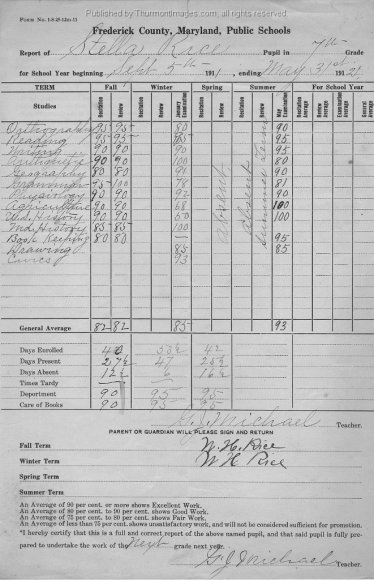 Published by ThurmontImages.com - all rights reserved
Form No. 1-8-25-12m-11
Frederick County, Maryland, Public Schools
Report of Stella Rice Pupil in 7th Grade
for School Year beginning Sept 5th 191 , ending May 31st 1921
TERM Fall Winter Spring Summer For School Year
Studies Recitation Review Recitation Review January Examination Recitation Review Recitation Review May Examination Recitation Average Review Average Examination Average General Average
Orthography 95 95 80 90
Reading 95 95 85 95
Writing 90 90 90 95
Arithmetic 90 90 100 80
Geography 80 80 90
Grammar 75 100 78 81
Physiology 90 90 92 90
Agriculture 90 90 68 100
U.S. History 90 90 60 100
Md. History 85 85 100
Book Keeping 80 80 95
Drawing 85 85
Civics 93
absent
absent
summer term
General Average 82 82 85 93
Days Enrolled 42
Days Present 27½ 47 25½
Days Absent 12½ 6 16½
Times Tardy
Deportment 90 95 95
Care of Books 90 95 95
G. J. Michael Teacher.
PARENT OR GUARDIAN WILL PLEASE SIGN AND RETURN
Fall Term W. H. Rice
Winter Term W H Rice
Spring Term
Summer Term
An Average of 90 per cent. or more shows Excellent Work.
An Average of 80 to 90 per cent. shows Good Work.
An Average of 75 to 80 per cent. shows Fair Work.
An Average of less than 75 per cent. shows unsatisfactory work, and will not be considered sufficient for promotion.
"I hereby certify that this is a full and correct report of the above named pupil, and that said pupil is fully prepared
to undertake the work of the Next grade next year.
G. J. Michael Teacher.